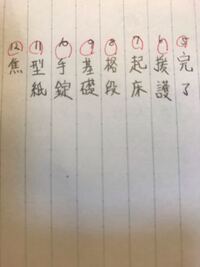 ⑤完了
⑥援護
⑦起床
⑧格段
⑨基礎
⑩手錠
⑪型紙
⑫焦